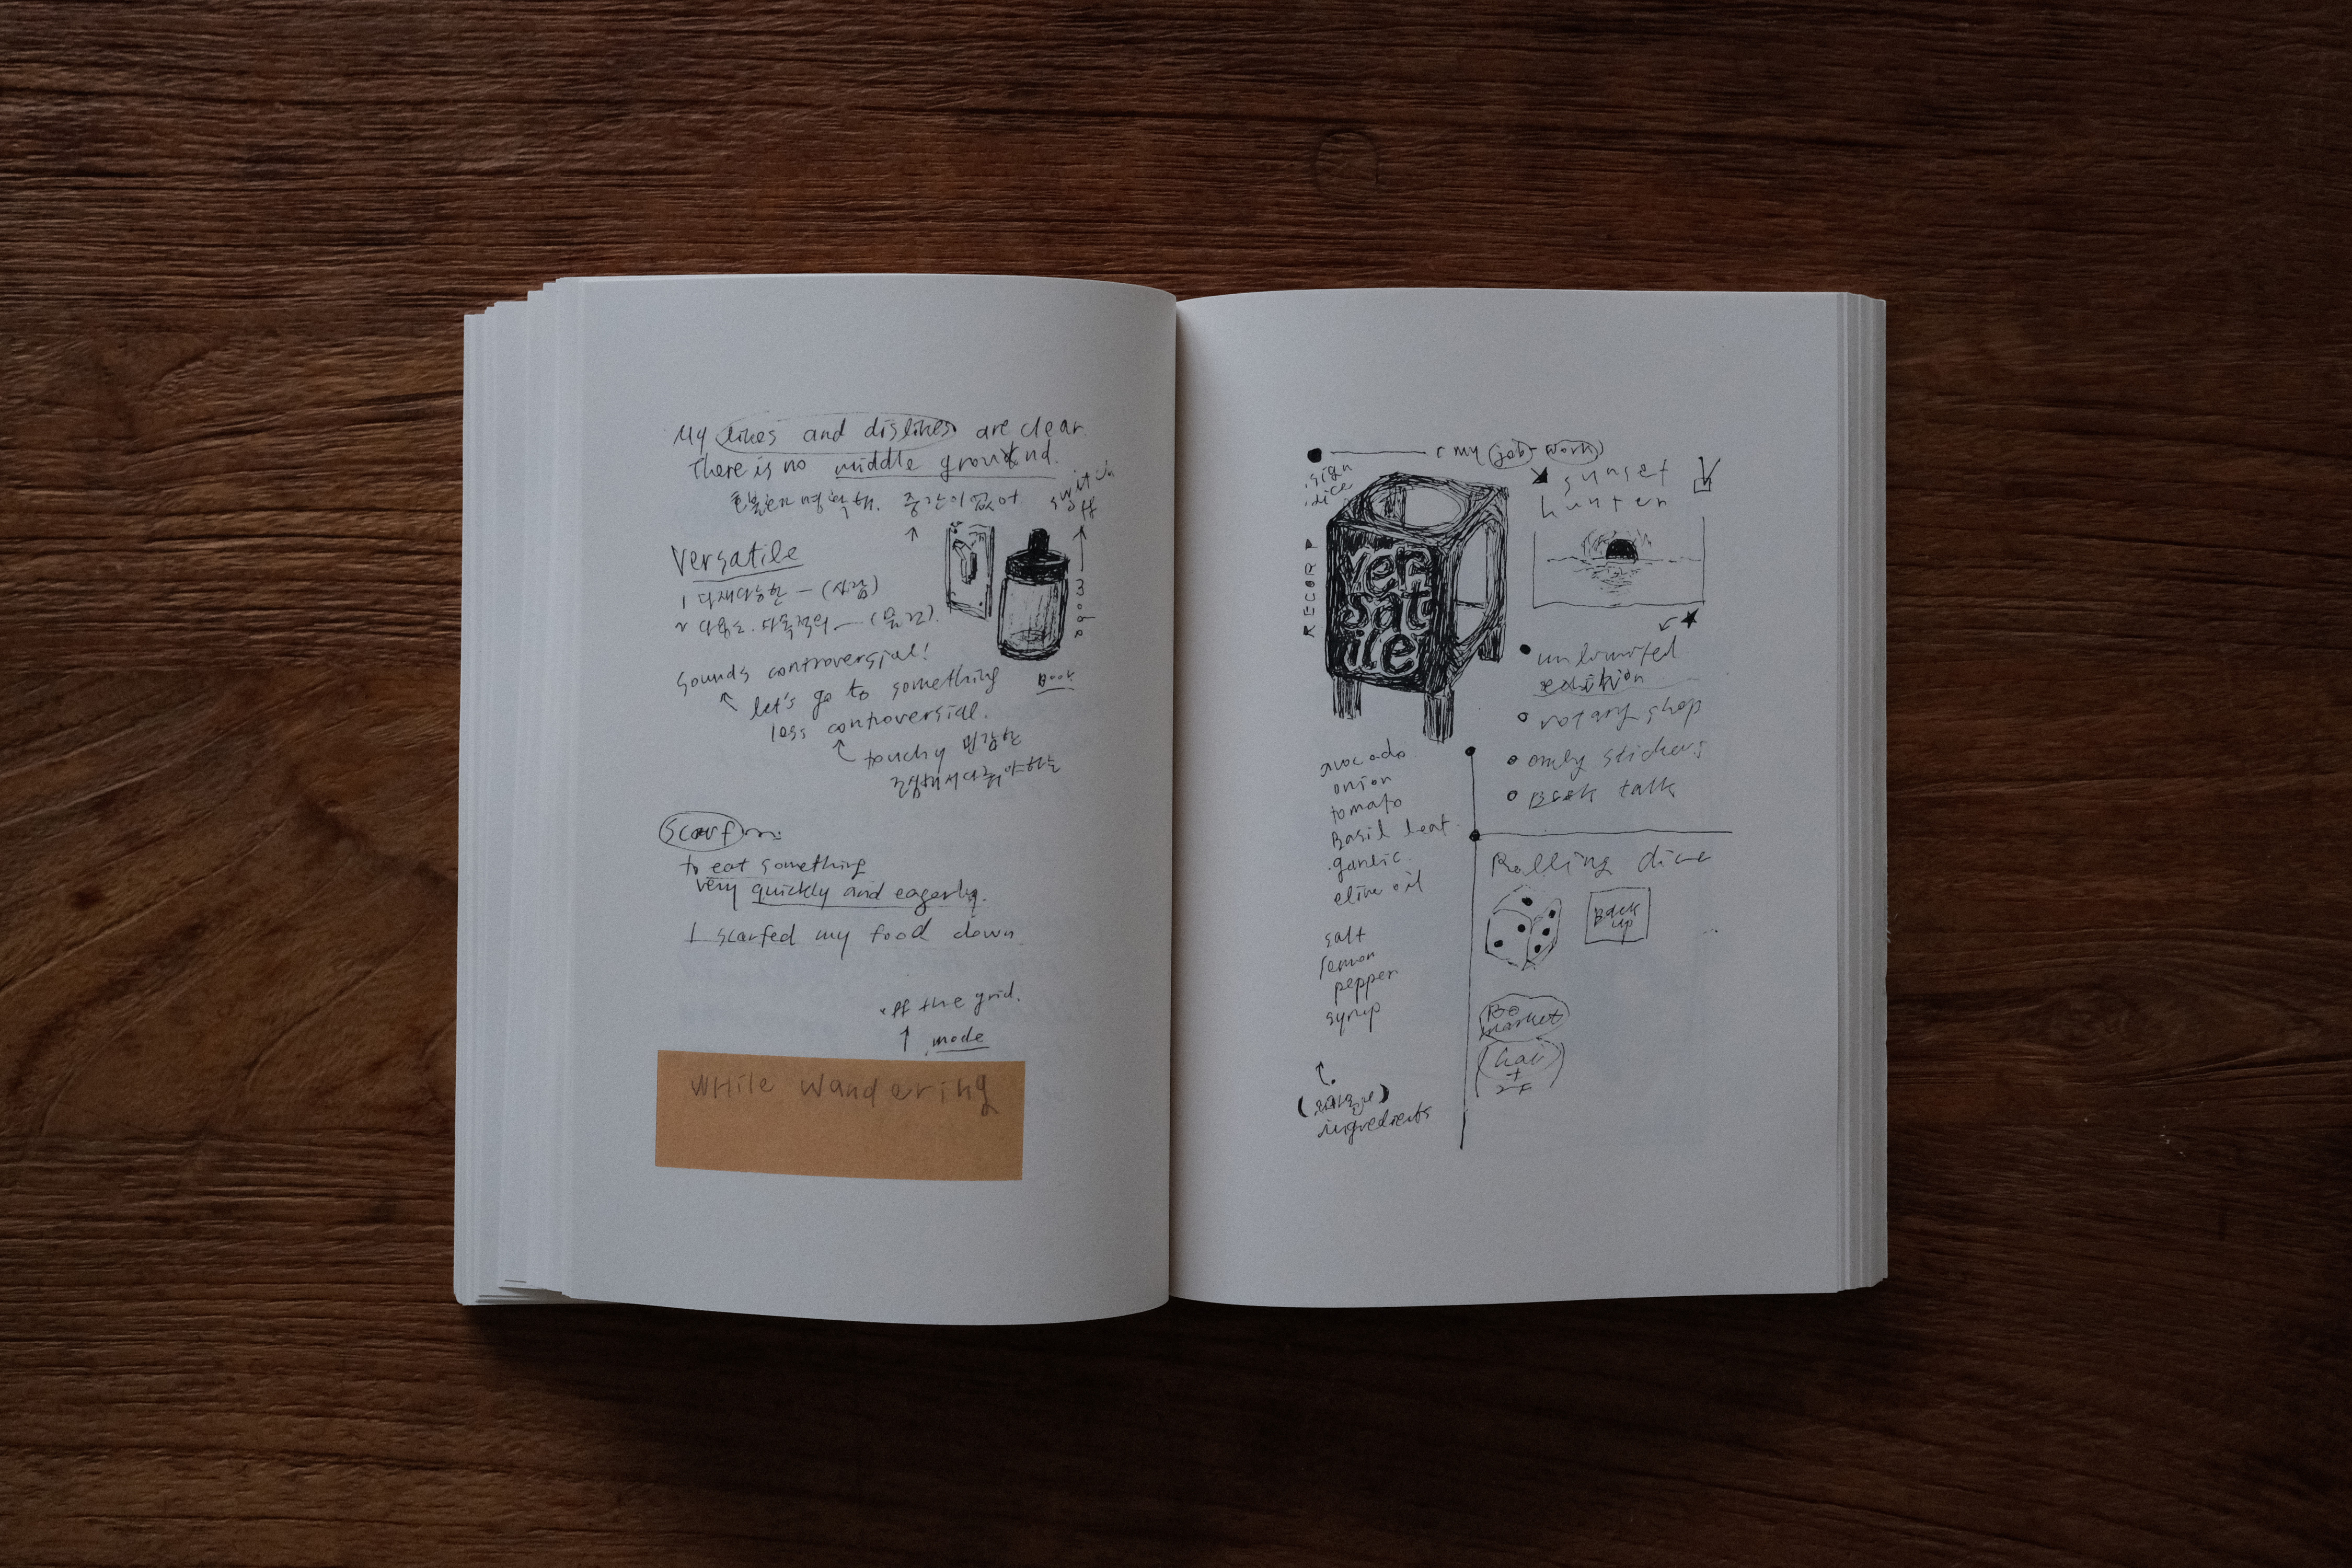 My likes and dislikes are clear
There is no middle ground.
호불호가 명확해. 중간이 없어
switch
off
Versatile
1 다재다능한 — (사람)
2 다용도. 다목적의 — (물건)
Book
sounds controversial!
let's go to something
less controversial.
touchy 민감한
조심해서 다뤄야하는
scarf
to eat something
very quickly and eagerly.
I scarfed my food down
off the grid.
mode
while wandering
my job-work
.sign
.dice
RECORD
ver
sat
ile
sunset
hunter
unlimited
edition
rotary shop
only stickers
Book talk
avocado
onion
tomato
Basil leaf
garlic
olive oil
salt
lemon
pepper
syrup
ingredients
Rolling dice
Back
up
market